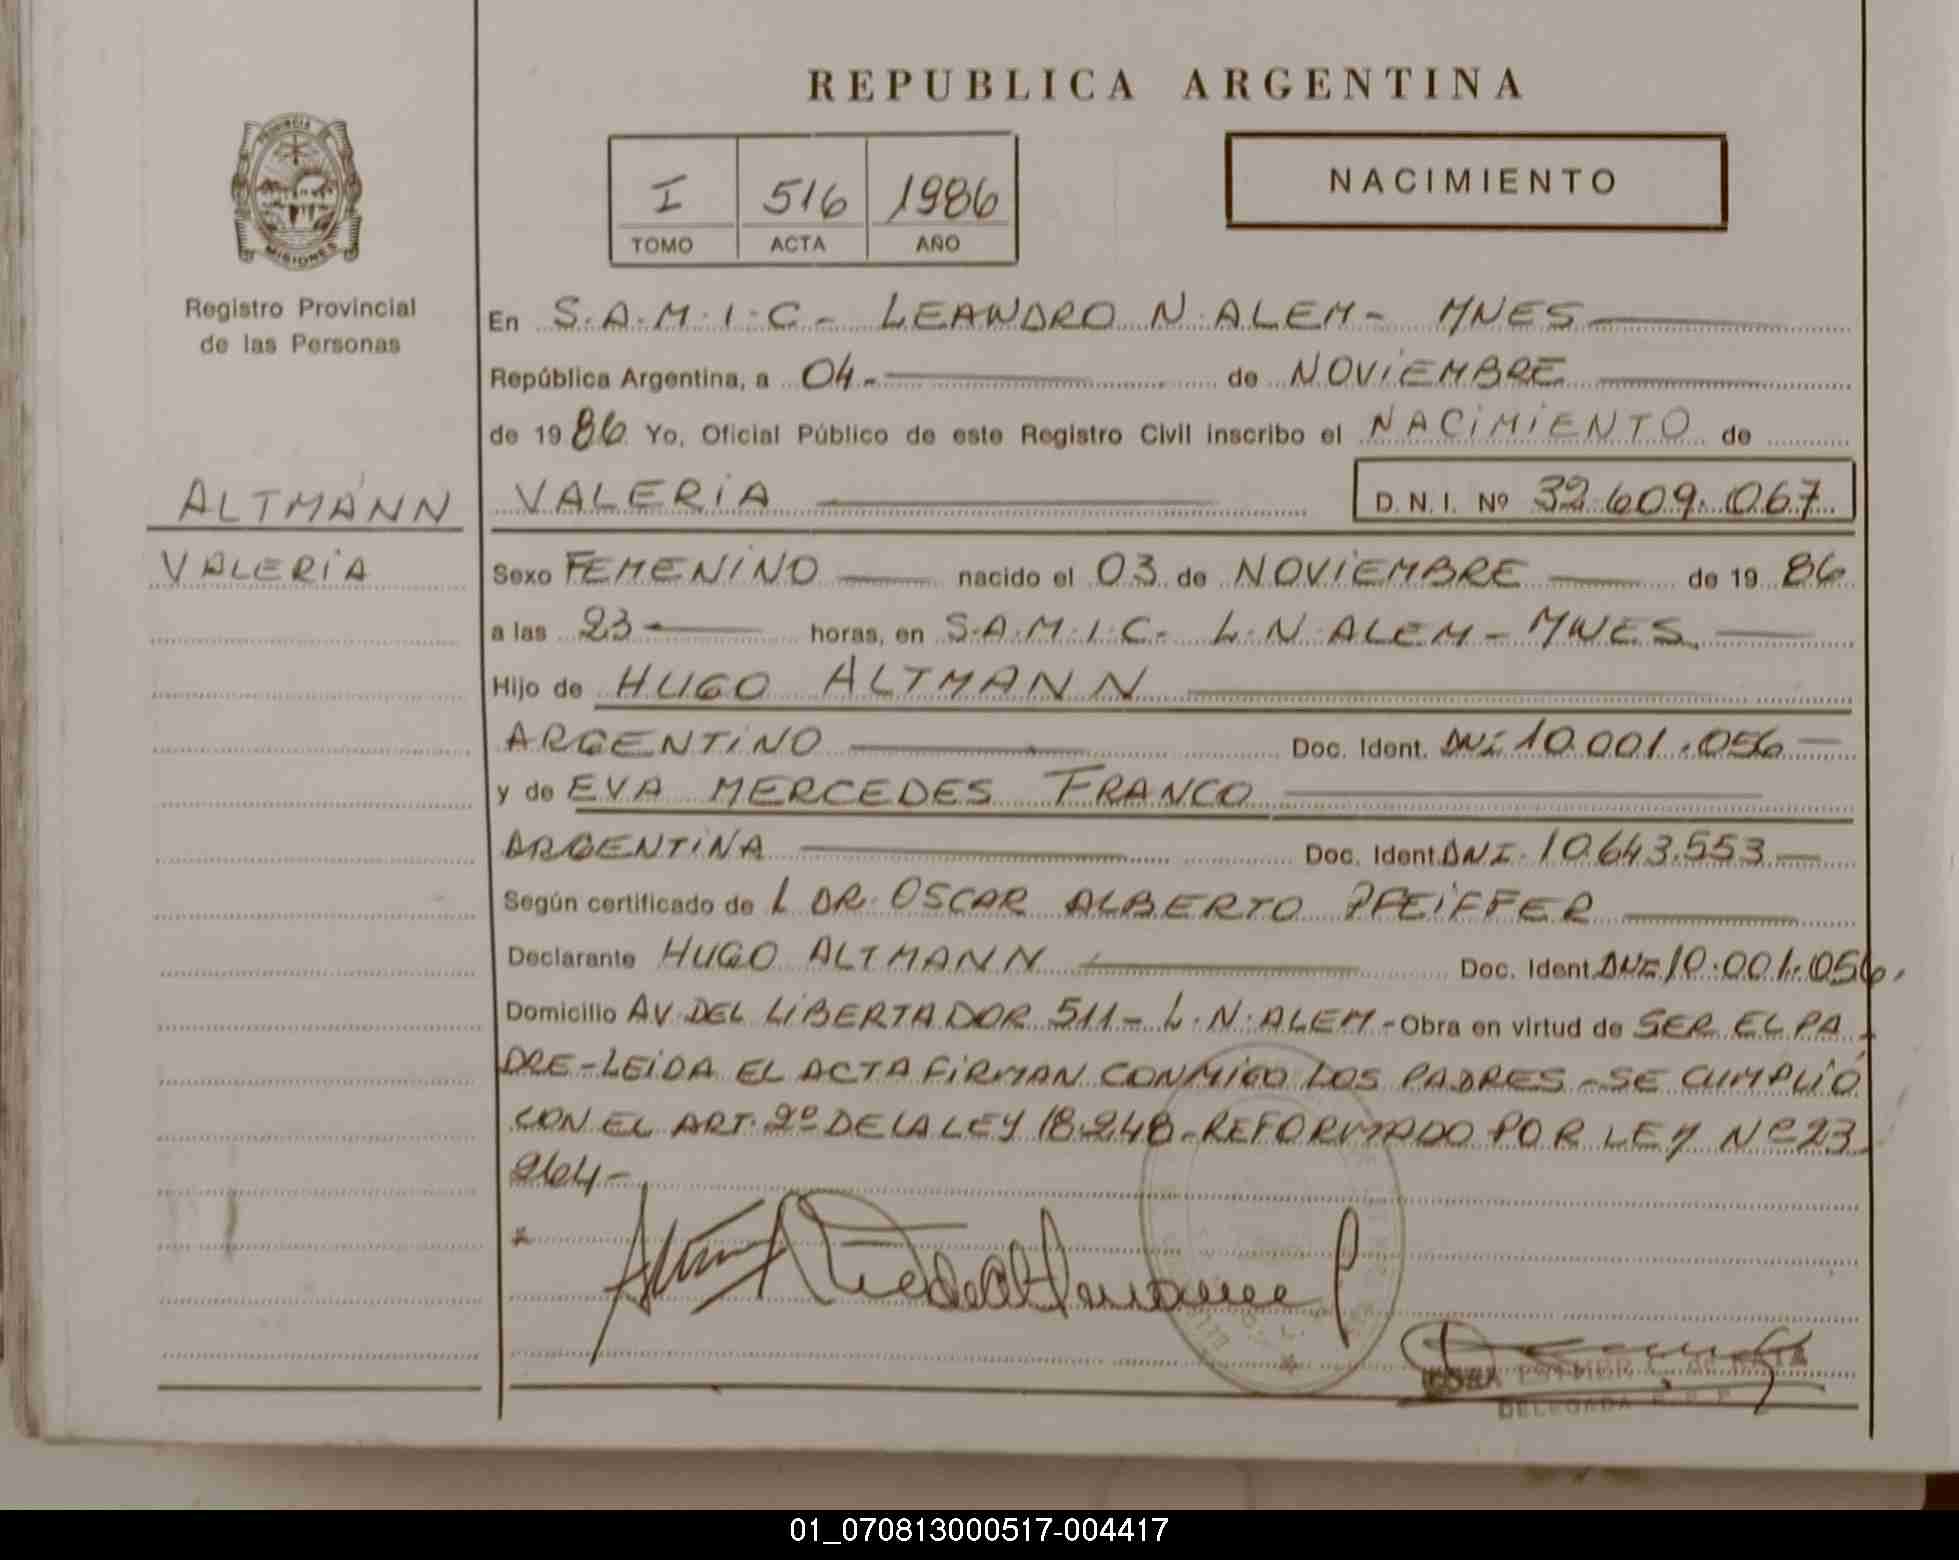 REPUBLICA ARGENTINA
PROVINCIA DE
MISIONES
Registro Provincial
de las Personas
I 516 1986
TOMO ACTA AÑO
NACIMIENTO
En S.A.M.I.C- LEANDRO N. ALEM- MNES
República Argentina, a 04.- de NOVIEMBRE
de 1986 Yo, Oficial Público de este Registro Civil inscribo el NACIMIENTO de
ALTMANN
VALERIA
VALERIA D.N.I. Nº 32.609.067
Sexo FEMENINO nacido el 03 de NOVIEMBRE de 19 86
a las 23 horas, en S.A.M.I.C- L.N.ALEM- MNES
Hijo de HUGO ALTMANN
ARGENTINO Doc. Ident. DNI 10.001.056
y de EVA MERCEDES FRANCO
ARGENTINA Doc. Ident. DNI. 10.643.553
Según certificado de L DR. OSCAR ALBERTO PFEIFFER
Declarante HUGO ALTMANN Doc. Ident. DNI 10.001.056.
Domicilio AV. DEL LIBERTADOR 511- L.N.ALEM- Obra en virtud de SER EL PA-
DRE-LEIDA EL ACTA FIRMAN CONMIGO LOS PADRES-SE CUMPLIÓ
CON EL ART. 2º DE LA LEY 18.248-REFORMADO POR LEY Nº 23
264-
DELEGADA
01_070813000517-004417